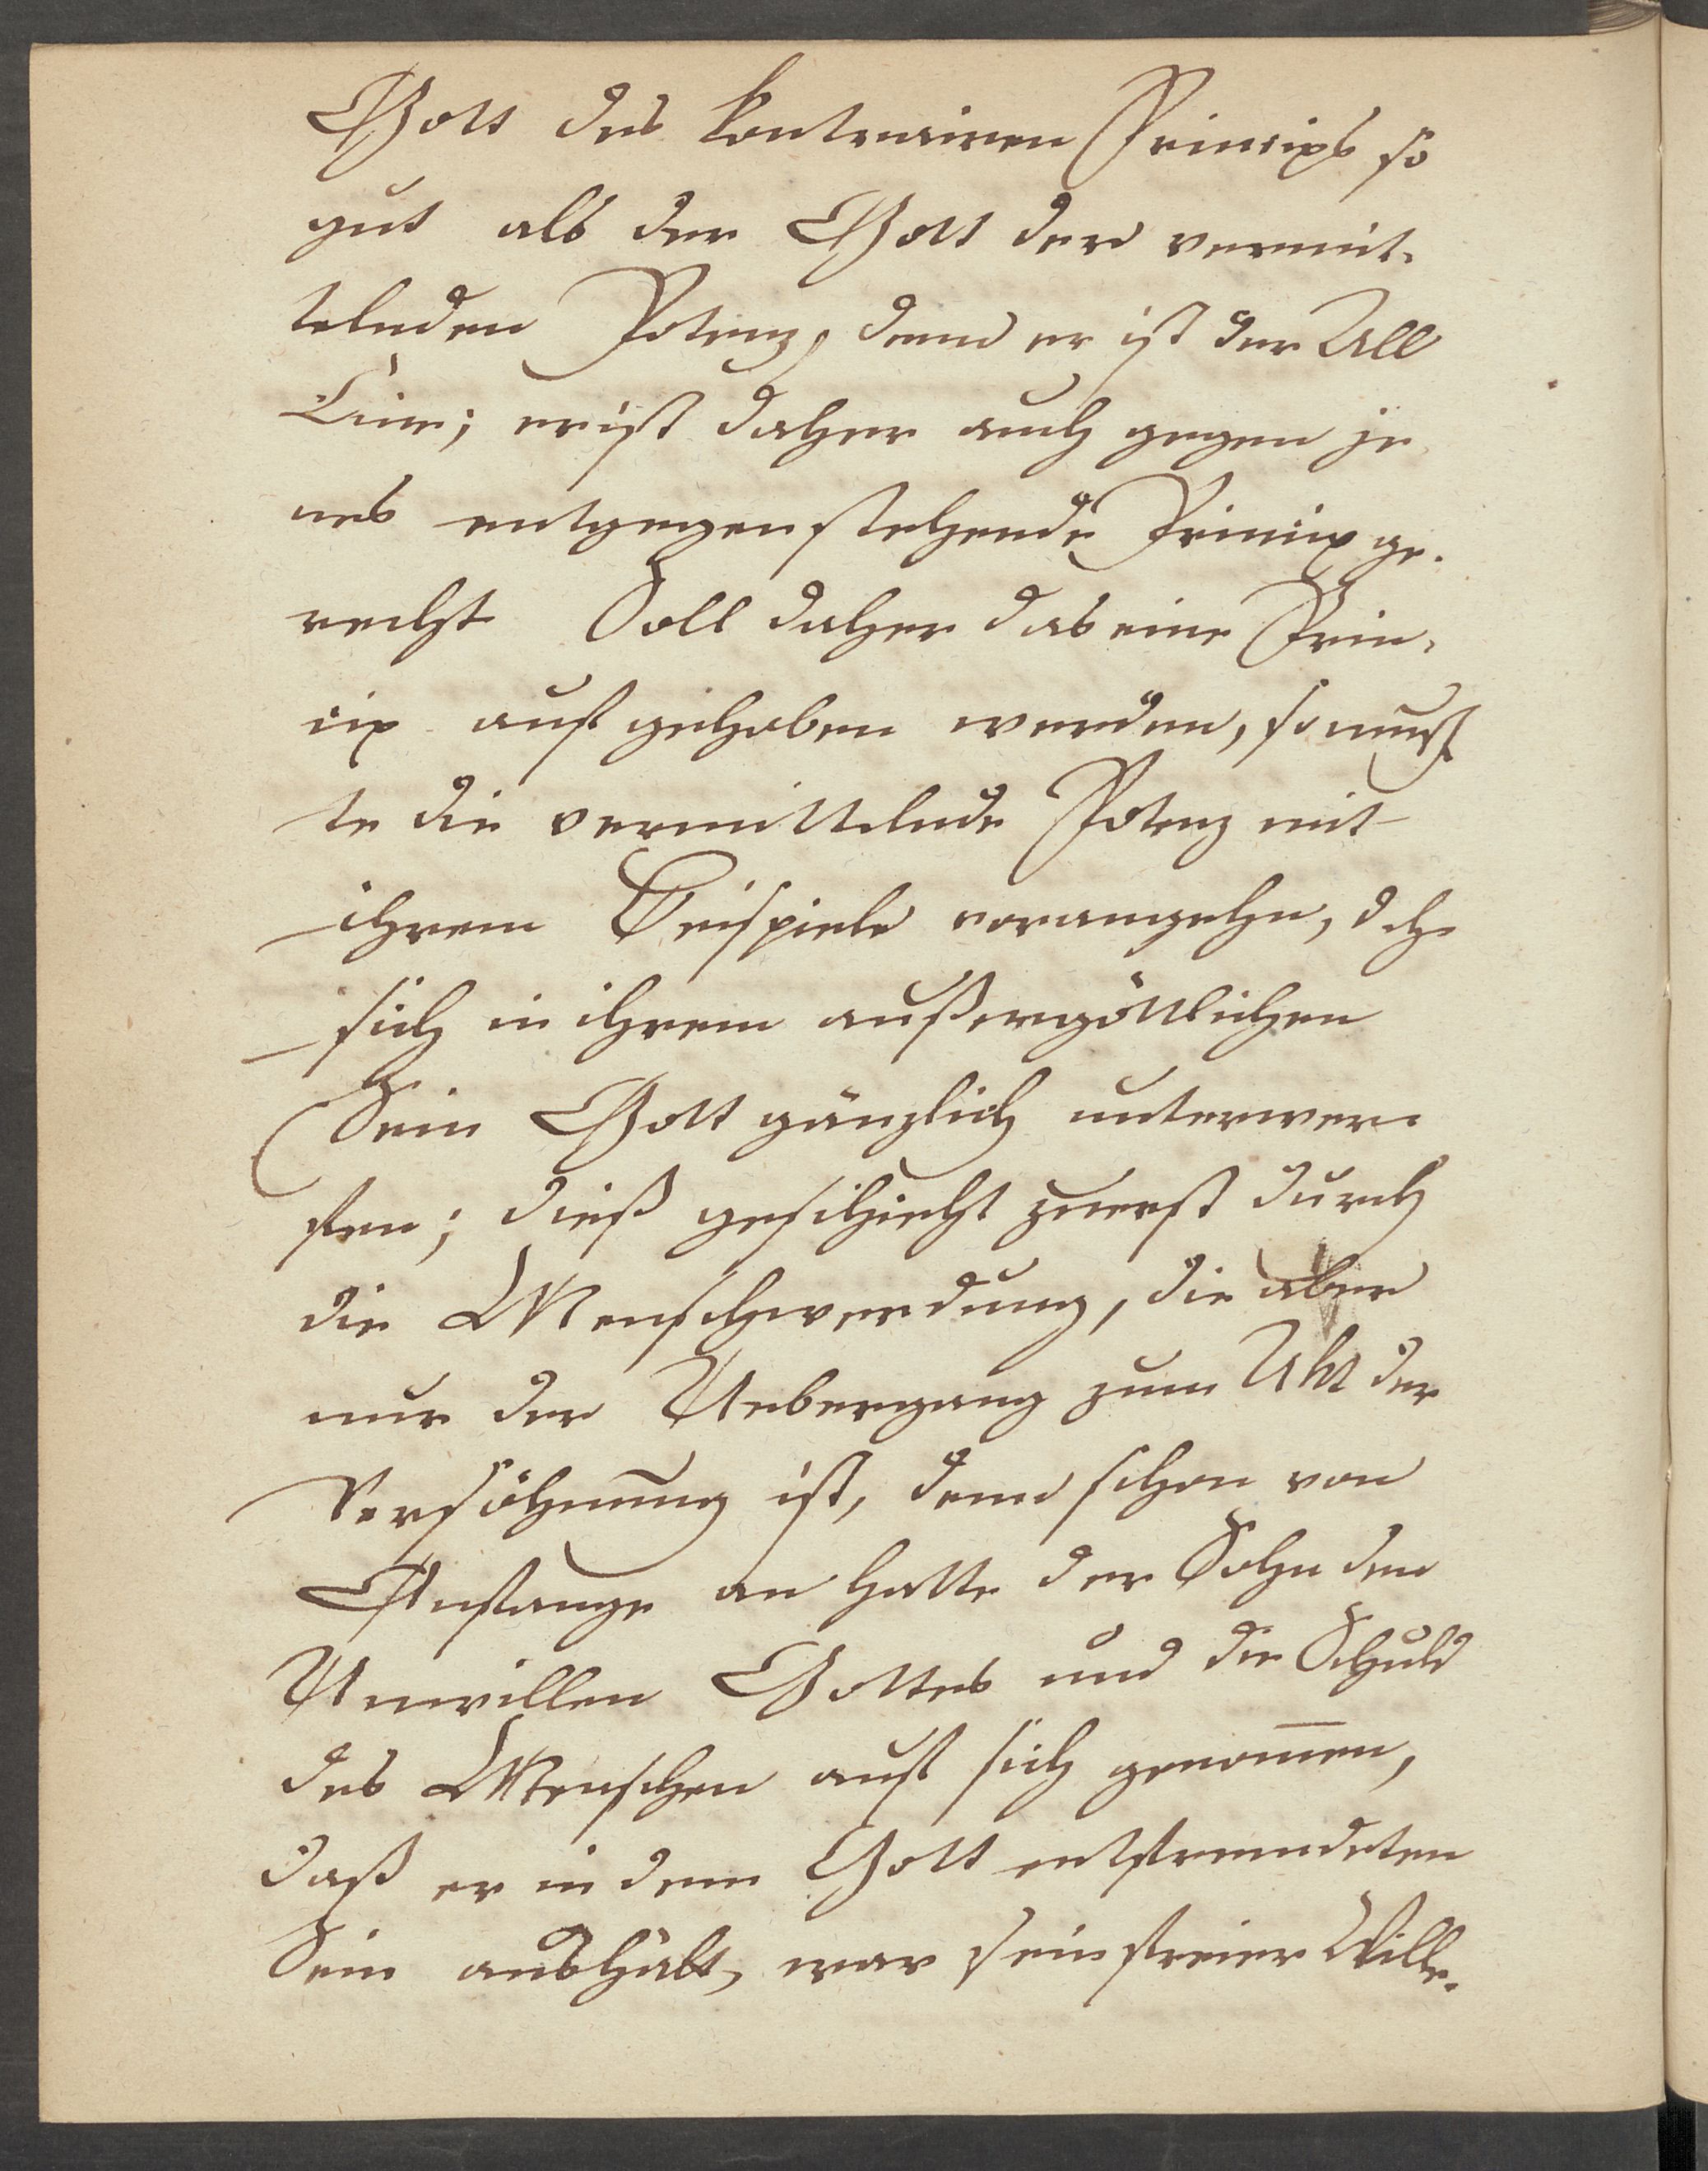 Gott des kontrairen Princips so
gut als der Gott der vermit-
telnden Potenz, denn er ist der All
Eine; er ist daher auch gegen je
nes entgegenstehende Princip ge-
recht Soll daher das eine Prin-
cip aufgehoben werden, so muß
te die vermittelnde Potenz mit
ihrem Beispiele vorangehn, d. h.
sich in ihrem außergöttlichen
Sein Gott gänzlich unterwer-
fen; dieß geschieht zuerst durch
die Menschwerdung, die aber
nur der Uebergang zum Akt der
Versöhnung ist, denn schon von
Anfange an hatte der Sohn den
Unwillen Gottes und die Schuld
des Menschen auf sich genom̅en,
daß er in dem Gott entfremdeten
Sein aushält, war sein freier Wille.